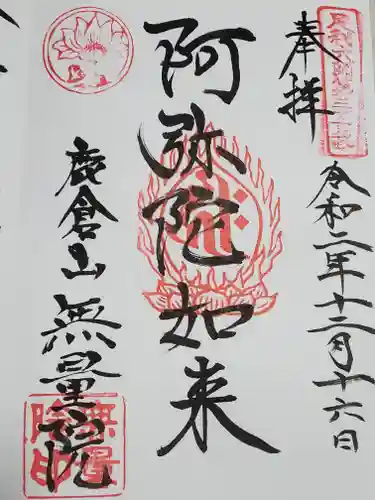 奉拝
令和二年十二月十六日
阿弥陀如来
鹿倉山
無量院